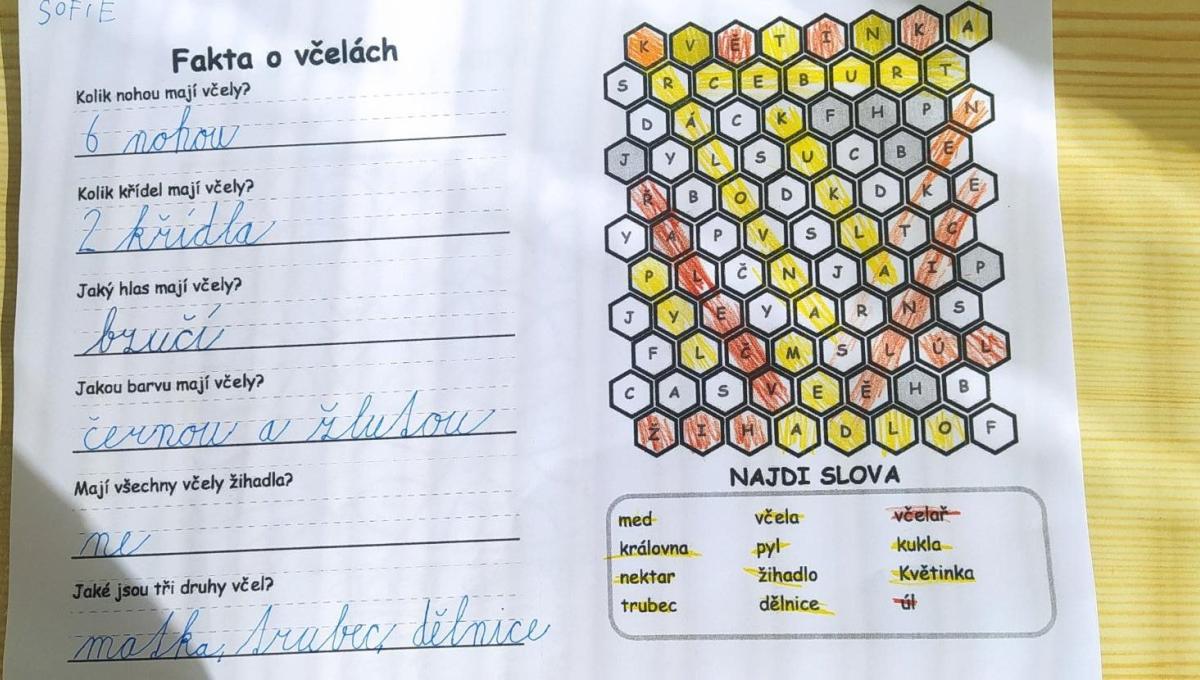 SOFIE
Fakta o včelách
Kolik nohou mají včely?
6 nohou
Kolik křídel mají včely?
2 křídla
Jaký hlas mají včely?
bzučí
Jakou barvu mají včely?
černou a žlutou
Mají všechny včely žihadla?
ne
Jaké jsou tři druhy včel?
matka, trubec, dělnice
K V Ě T I N K A
S R C E B U R T
D Á C K F H P N
J Y L S U C B E
Ř B O D K D K E
Y A P V S L T C
P L Č N J A I P
J Y E Y A R N S
F L Č M S L Ú L
C A S V E Ě H B
Ž I H A D L O F
NAJDI SLOVA
med včela včelař
královna pyl kukla
nektar žihadlo Květinka
trubec dělnice úl